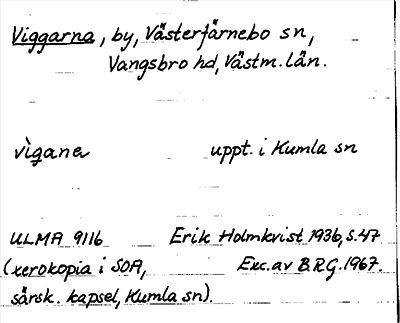 Viggarna, by, Västerfärnebo sn,
Vangsbro hd, Västm. län.
vìganɐ uppt. i Kumla sn
ULMA 9116 Erik Holmkvist 1936, s. 47
(xerokopia i SOA, Exc. av B.R.G. 1967.
särsk. kapsel, Kumla sn).